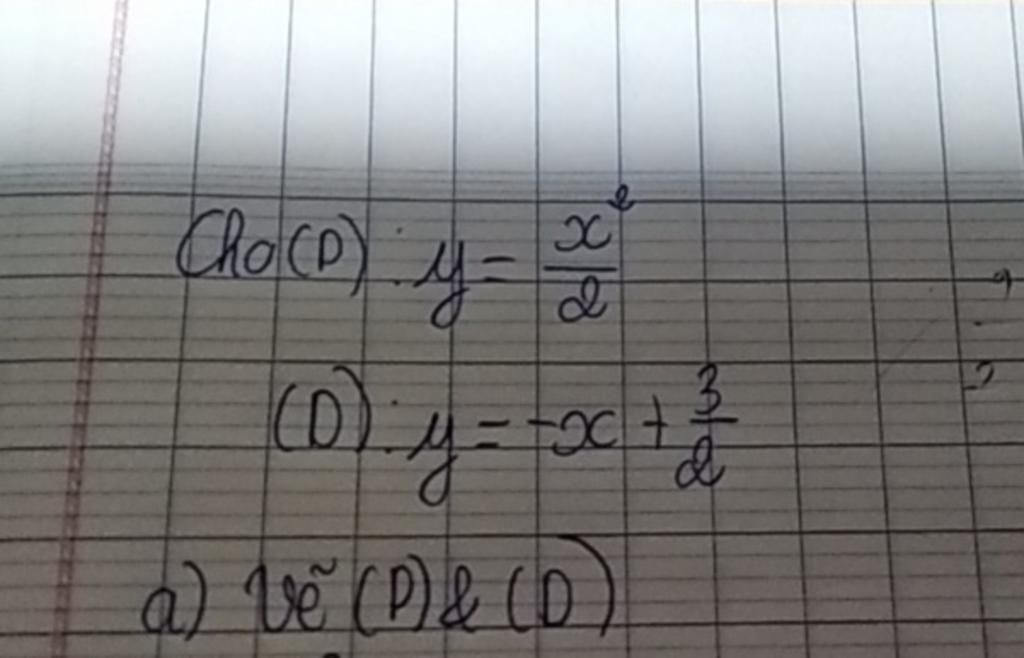 Cho (P): y = x²/2
(D): y = -x + 3/2
a) Vẽ (P) & (D)